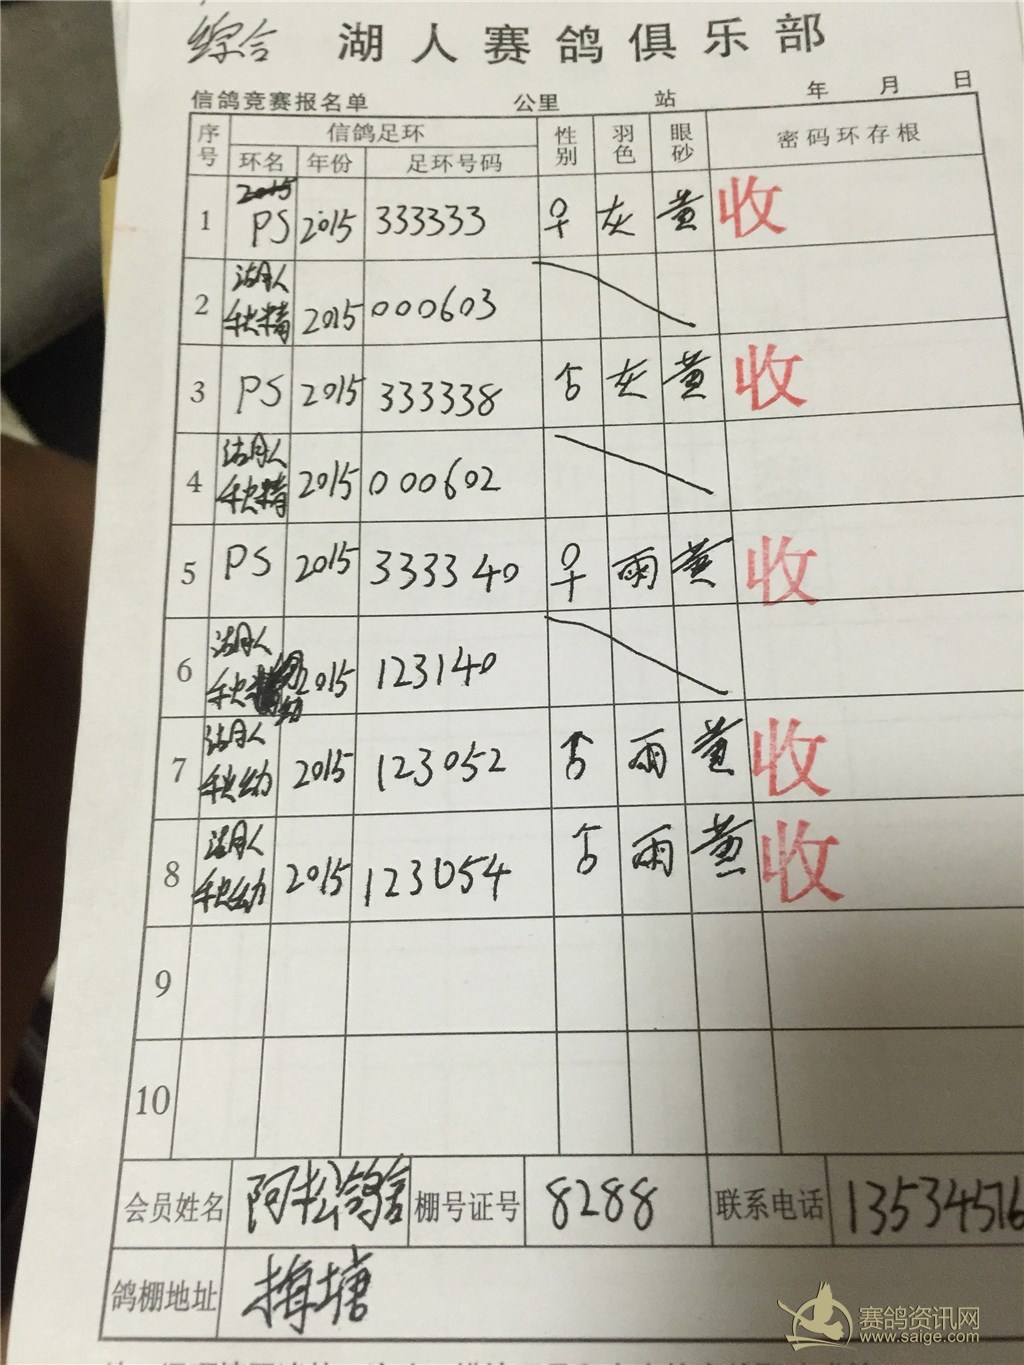 综合 湖人赛鸽俱乐部
信鸽竞赛报名单 公里 站 年 月 日
序号 信鸽足环 性别 羽色 眼砂 密码环存根
环名 年份 足环号码
2015
1 PS 2015 333333 ♀ 灰 黄 收
湖人
2 秋精 2015 000603
3 PS 2015 333338 ♂ 灰 黄 收
湖人
4 秋精 2015 000602
5 PS 2015 333340 ♀ 雨 黄 收
湖人
6 秋 幼 2015 123140
湖人
7 秋幼 2015 123052 ♂ 雨 黄 收
湖人
8 秋幼 2015 123054 ♂ 雨 黄 收
9
10
会员姓名 阿松鸽舍 棚号证号 8288 联系电话 13534516
鸽棚地址 梅塘
赛鸽资讯网
www.saige.com